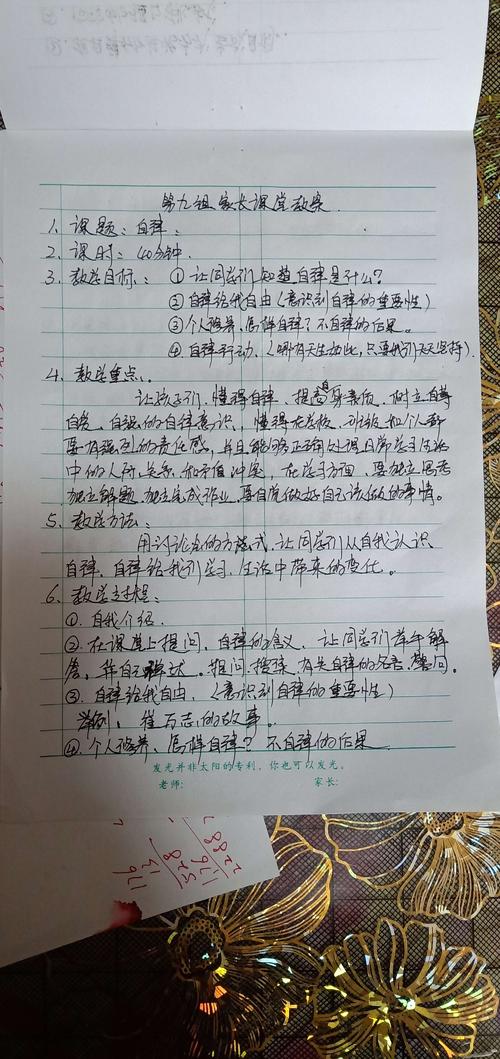 第九组家长课堂教案
1、课题：自律。
2、课时：40分钟.
3、教学目标：①让同学们知道自律是什么？
②自律给我自由（意识到自律的重要性）
③个人修养，怎样自律？不自律的后果。
④自律行动，（哪有天生如此，只要我们天天坚持）.
4、教学重点：
让孩子们，懂得自律，提高自身素质，树立自尊
自爱，自强的自律意识，懂得在学校、班级和个人都
要有强烈的责任感，并且能够正确处理日常学习生活
中的人际关系和矛盾冲突，在学习方面，要独立思考
独立解题，独立完成作业，要自觉做好自己该做的事情。
5、教学方法：
用讨论法的方式，让同学们从自我认识
自律，自律给我们学习，生活中带来的变化。
6、教学过程：
①.自我介绍.
②.在课堂上提问，自律的含义，让同学们举手解
答，并自己表达。提问 搜集，有关自律的名言 警句.
③自律给我自由，（意识到自律的重要性）
举例，崔万志的故事。
④.个人修养，怎样自律？不自律的后果
发光并非太阳的专利，你也可以发光。
老师： 家长：
22
88
176
176